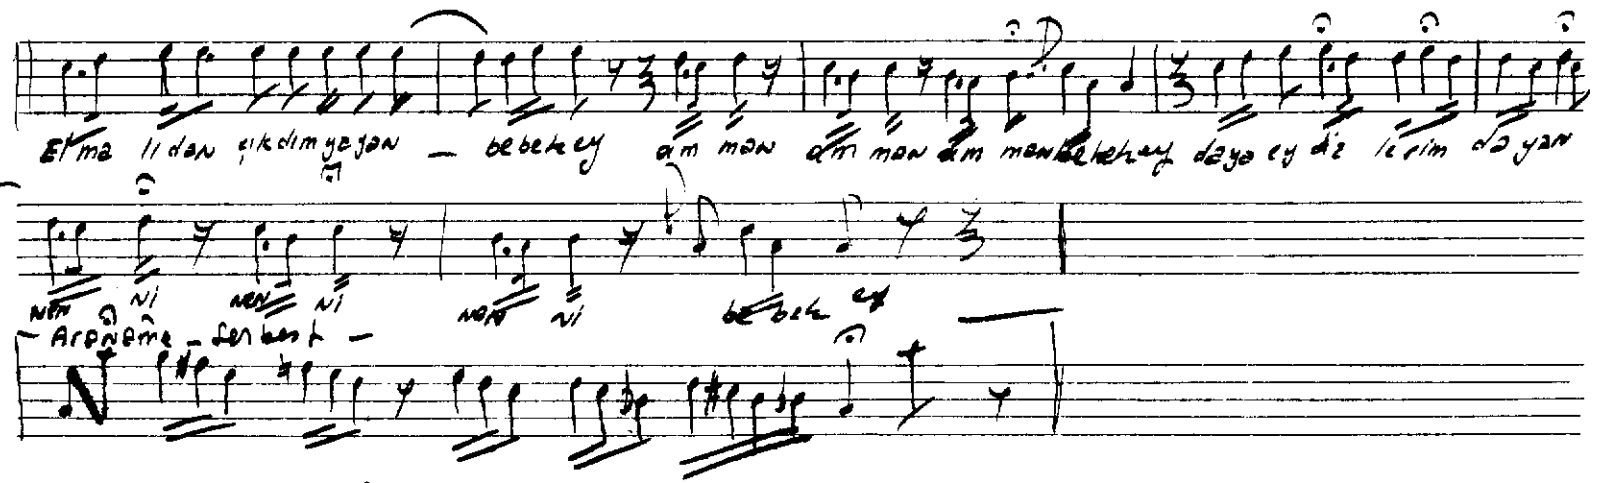 Elma lıdan çıkdım yayan — bebek ey am man am man am man bebek ey daya ey diz lerim dayan
Nen ni nen ni nen ni be bek ey
— Aranağme - Serbest —